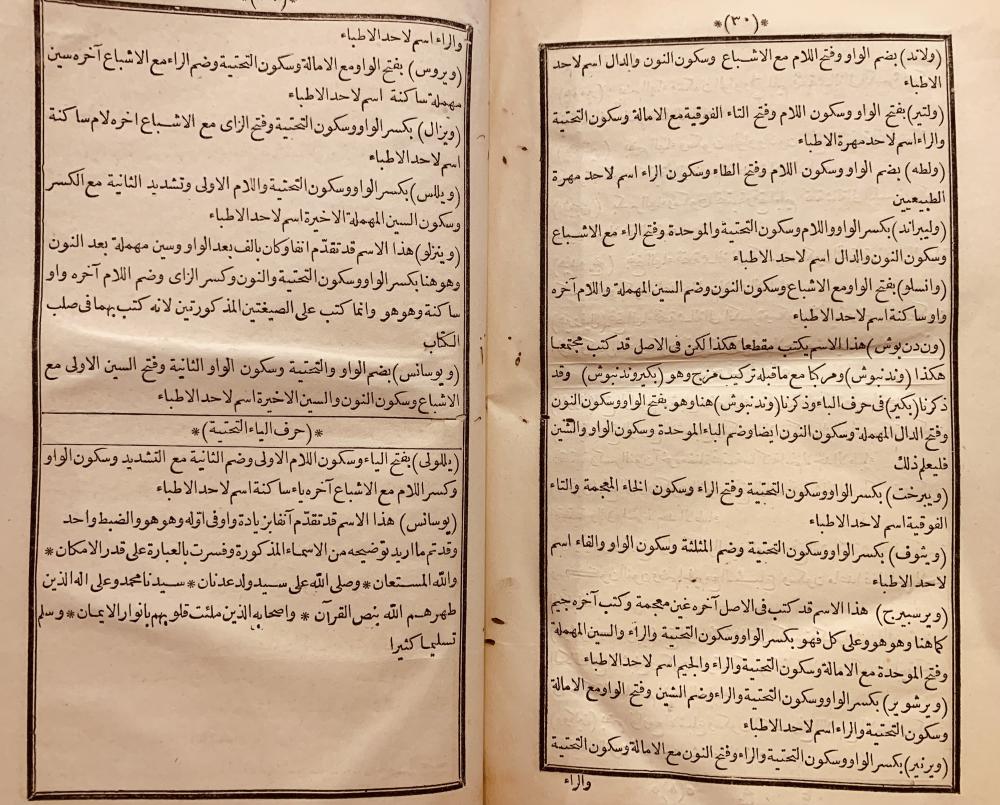 *(٣٠)*
(ولاند) بضم الواو وفتح اللام مع الاشباع وسكون النون والدال اسم لاحد
الاطباء
(ولتير) بفتح الواو وسكون اللام وفتح التاء الفوقية مع الامالة وسكون التحتية
والراء اسم لاحد مهرة الاطباء
(ولطه) بضم الواو وسكون اللام وفتح الطاء وسكون الراء اسم لاحد مهرة
الطبيعيين
(وليبراند) بكسر الواو واللام وسكون التحتية والموحدة وفتح الراء مع الاشباع
وسكون النون والدال اسم لاحد الاطباء
(وانسلو) بفتح الواو مع الاشباع وسكون النون وضم السين المهملة واللام آخره
واو ساكنة اسم لاحد الاطباء
(ون دن بوش) هذا الاسم يكتب مقطعا هكذا لكن فى الاصل قد كتب مجتمعا
هكذا (وندنبوش) ومركبا مع ماقبله تركيب مزج وهو (بكيروندنبوش) وقد
ذكرنا (بكير) فى حرف الباء وذكرنا (وندنبوش) هنا وهو بفتح الواو وسكون النون
وفتح الدال المهملة وسكون النون ايضا وضم الباء الموحدة وسكون الواو والشين
فليعلم ذلك
(ويبرخت) بكسر الواو وسكون التحتية وفتح الراء وسكون الخاء المعجمة والتاء
الفوقية اسم لاحد الاطباء
(ويثوف) بكسر الواو وسكون التحتية وضم المثلثة وسكون الواو والفاء اسم
لاحد الاطباء
(ويرسبيرج) هذا الاسم قد كتب فى الاصل آخره غين معجمة وكتب آخره جيم
كما هنا وهو هو وعلى كل فهو بكسر الواو وسكون التحتية والراء والسين المهملة
وفتح الموحدة مع الامالة وسكون التحتية والراء والجيم اسم لاحد الاطباء
(ويرشوير) بكسر الواو وسكون التحتية والراء وضم الشين وفتح الواو مع الامالة
وسكون التحتية والراء اسم لاحد الاطباء
(ويرنير) بكسر الواو وسكون التحتية والراء وفتح النون مع الامالة وسكون التحتية
والراء
والراء اسم لاحد الاطباء
(ويروس) بفتح الواو مع الامالة وسكون التحتية وضم الراء مع الاشباع آخره سين
مهملة ساكنة اسم لاحد الاطباء
(ويزال) بكسر الواو وسكون التحتية وفتح الزاى مع الاشباع اخره لام ساكنة
اسم لاحد الاطباء
(ويللس) بكسر الواو وسكون التحتية واللام الاولى وتشديد الثانية مع الكسر
وسكون السين المهملة الاخيرة اسم لاحد الاطباء
(وينزلو) هذا الاسم قد تقدّم انفا وكان بالف بعد الواو وسين مهملة بعد النون
وهو هنا بكسر الواو وسكون التحتية والنون وكسر الزاى وضم اللام آخره واو
ساكنة وهو هو وانما كتب على الصيغتين المذكورتين لانه كتب بهما فى صلب
الكتاب
(ويوسانس) بضم الواو والتحتية وسكون الواو الثانية وفتح السين الاولى مع
الاشباع وسكون النون والسين الاخيرة اسم لاحد الاطباء
*(حرف الياء التحتية)*
(يللولى) بفتح الياء وسكون اللام الاولى وضم الثانية مع التشديد وسكون الواو
وكسر اللام مع الاشباع آخره ياء ساكنة اسم لاحد الاطباء
(يوسانس) هذا الاسم قد تقدّم آنفا بزيادة واو فى اوله وهو هو والضبط واحد
وقد تم ما اريد توضيحه من الاسماء المذكورة وفسرت بالعبارة على قدر الامكان *
والله المستعان * وصلى الله على سيد ولد عدنان * سيدنا محمد وعلى اله الذين
طهرهم الله بنص القرآن * واصحابه الذين ملئت قلوبهم بانوار الايمان * وسلم
تسليما كثيرا